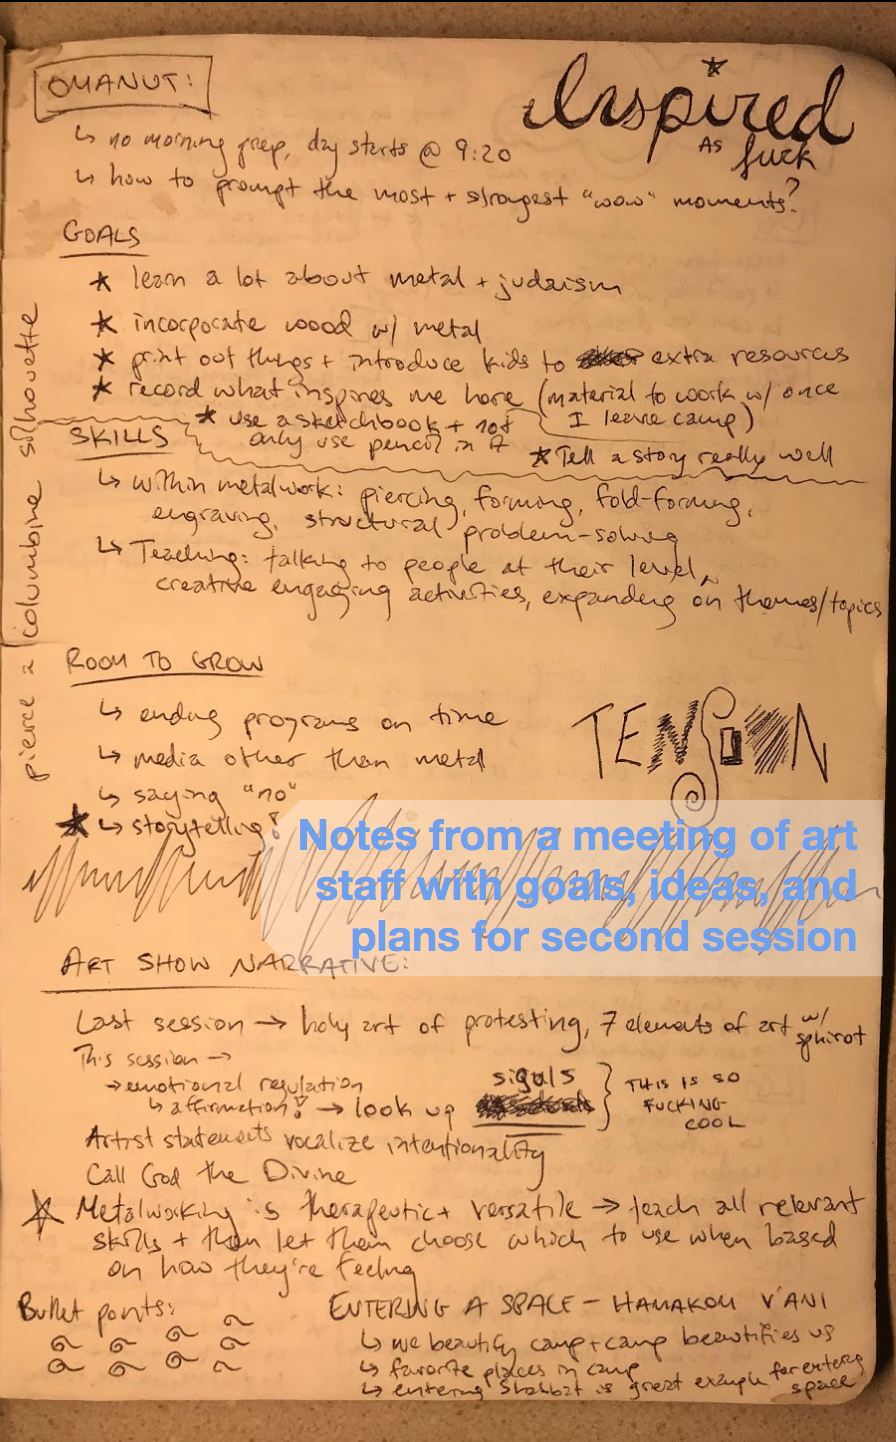 OMANUT:
Inspired
As fuck
↳ no morning prep, day starts @ 9:20
↳ how to prompt the most + strongest "wow" moments?
GOALS
★ learn a lot about metal + judaism
★ incorporate wood w/ metal
★ print out things + introduce kids to extra resources
★ record what inspires me here (material to work w/ once
I leave camp)
★ use a sketchbook + not
only use pencil in it
★ Tell a story really well
SKILLS
↳ Within metalwork: piercing, forming, fold-forming,
engraving, structural problem-solving
↳ Teaching: talking to people at their level,
creative engaging activities, expanding on themes/topics
pierce a columbine silhouette
ROOM TO GROW
↳ ending programs on time
↳ media other than metal
↳ saying "no"
★ ↳ storytelling!
TENSION
Notes from a meeting of art
staff with goals, ideas, and
plans for second session
ART SHOW NARRATIVE:
Last session → holy art of protesting, 7 elements of art w/
sphirot
This session →
→ emotional regulation
↳ affirmation!? → look up sigals
THIS IS SO
FUCKING
COOL
Artist statements vocalize intentionality
Call God the Divine
☆ Metalworking is therapeutic + versatile → teach all relevant
skills + then let them choose which to use when based
on how they're feeling
Bullet points:
ENTERING A SPACE - HAMAKOM V'ANI
↳ we beautify camp + camp beautifies us
↳ favorite places in camp
↳ entering Shabbat is great example for entering
space